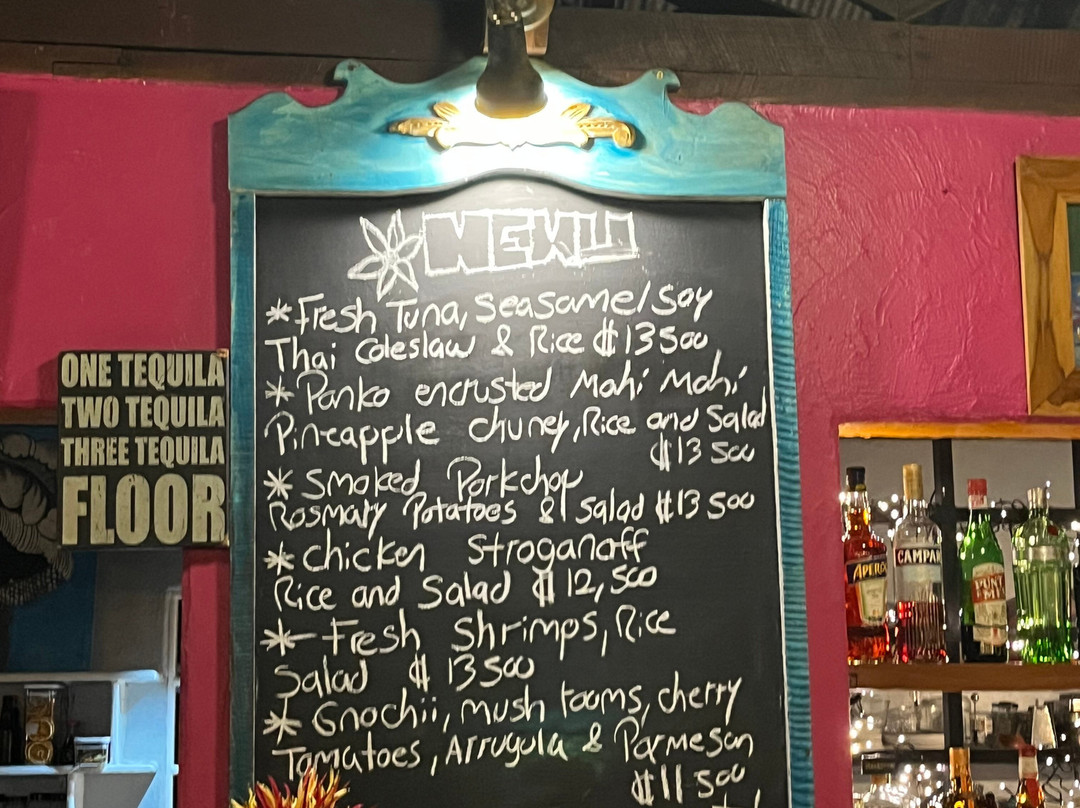 MENU
*Fresh Tuna, Seasame/Soy
Thai Coleslaw & Rice ₡13500
* Panko encrusted Mahi Mahi
Pineapple chuney, Rice and Salad
₡13 500
* Smoked Porkchop
Rosmary Potatoes & Salad ₡13 500
* Chicken Stroganoff
Rice and Salad ₡ 12,500
* Fresh Shrimps, Rice
Salad ₡ 13500
* Gnochii, mushrooms, cherry
Tomatoes, Arrugula & Parmesan
₡11 500
ONE TEQUILA
TWO TEQUILA
THREE TEQUILA
FLOOR
APEROL
CAMPARI
PUNT
E MES